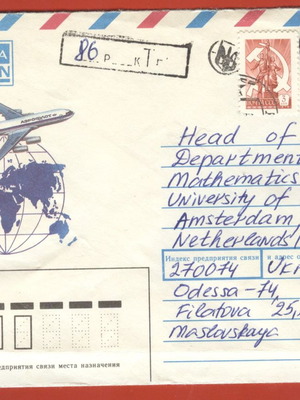 86. р К Т
А
AN
АЭРОФЛОТ
Head of
Department
Mathematics
University of
Amsterdam
Netherlands
Индекс предприятия связи и адрес о
270074 UKR
Odessa-74,
Filatova 25,
Maslovskaya
едприятия связи места назначения